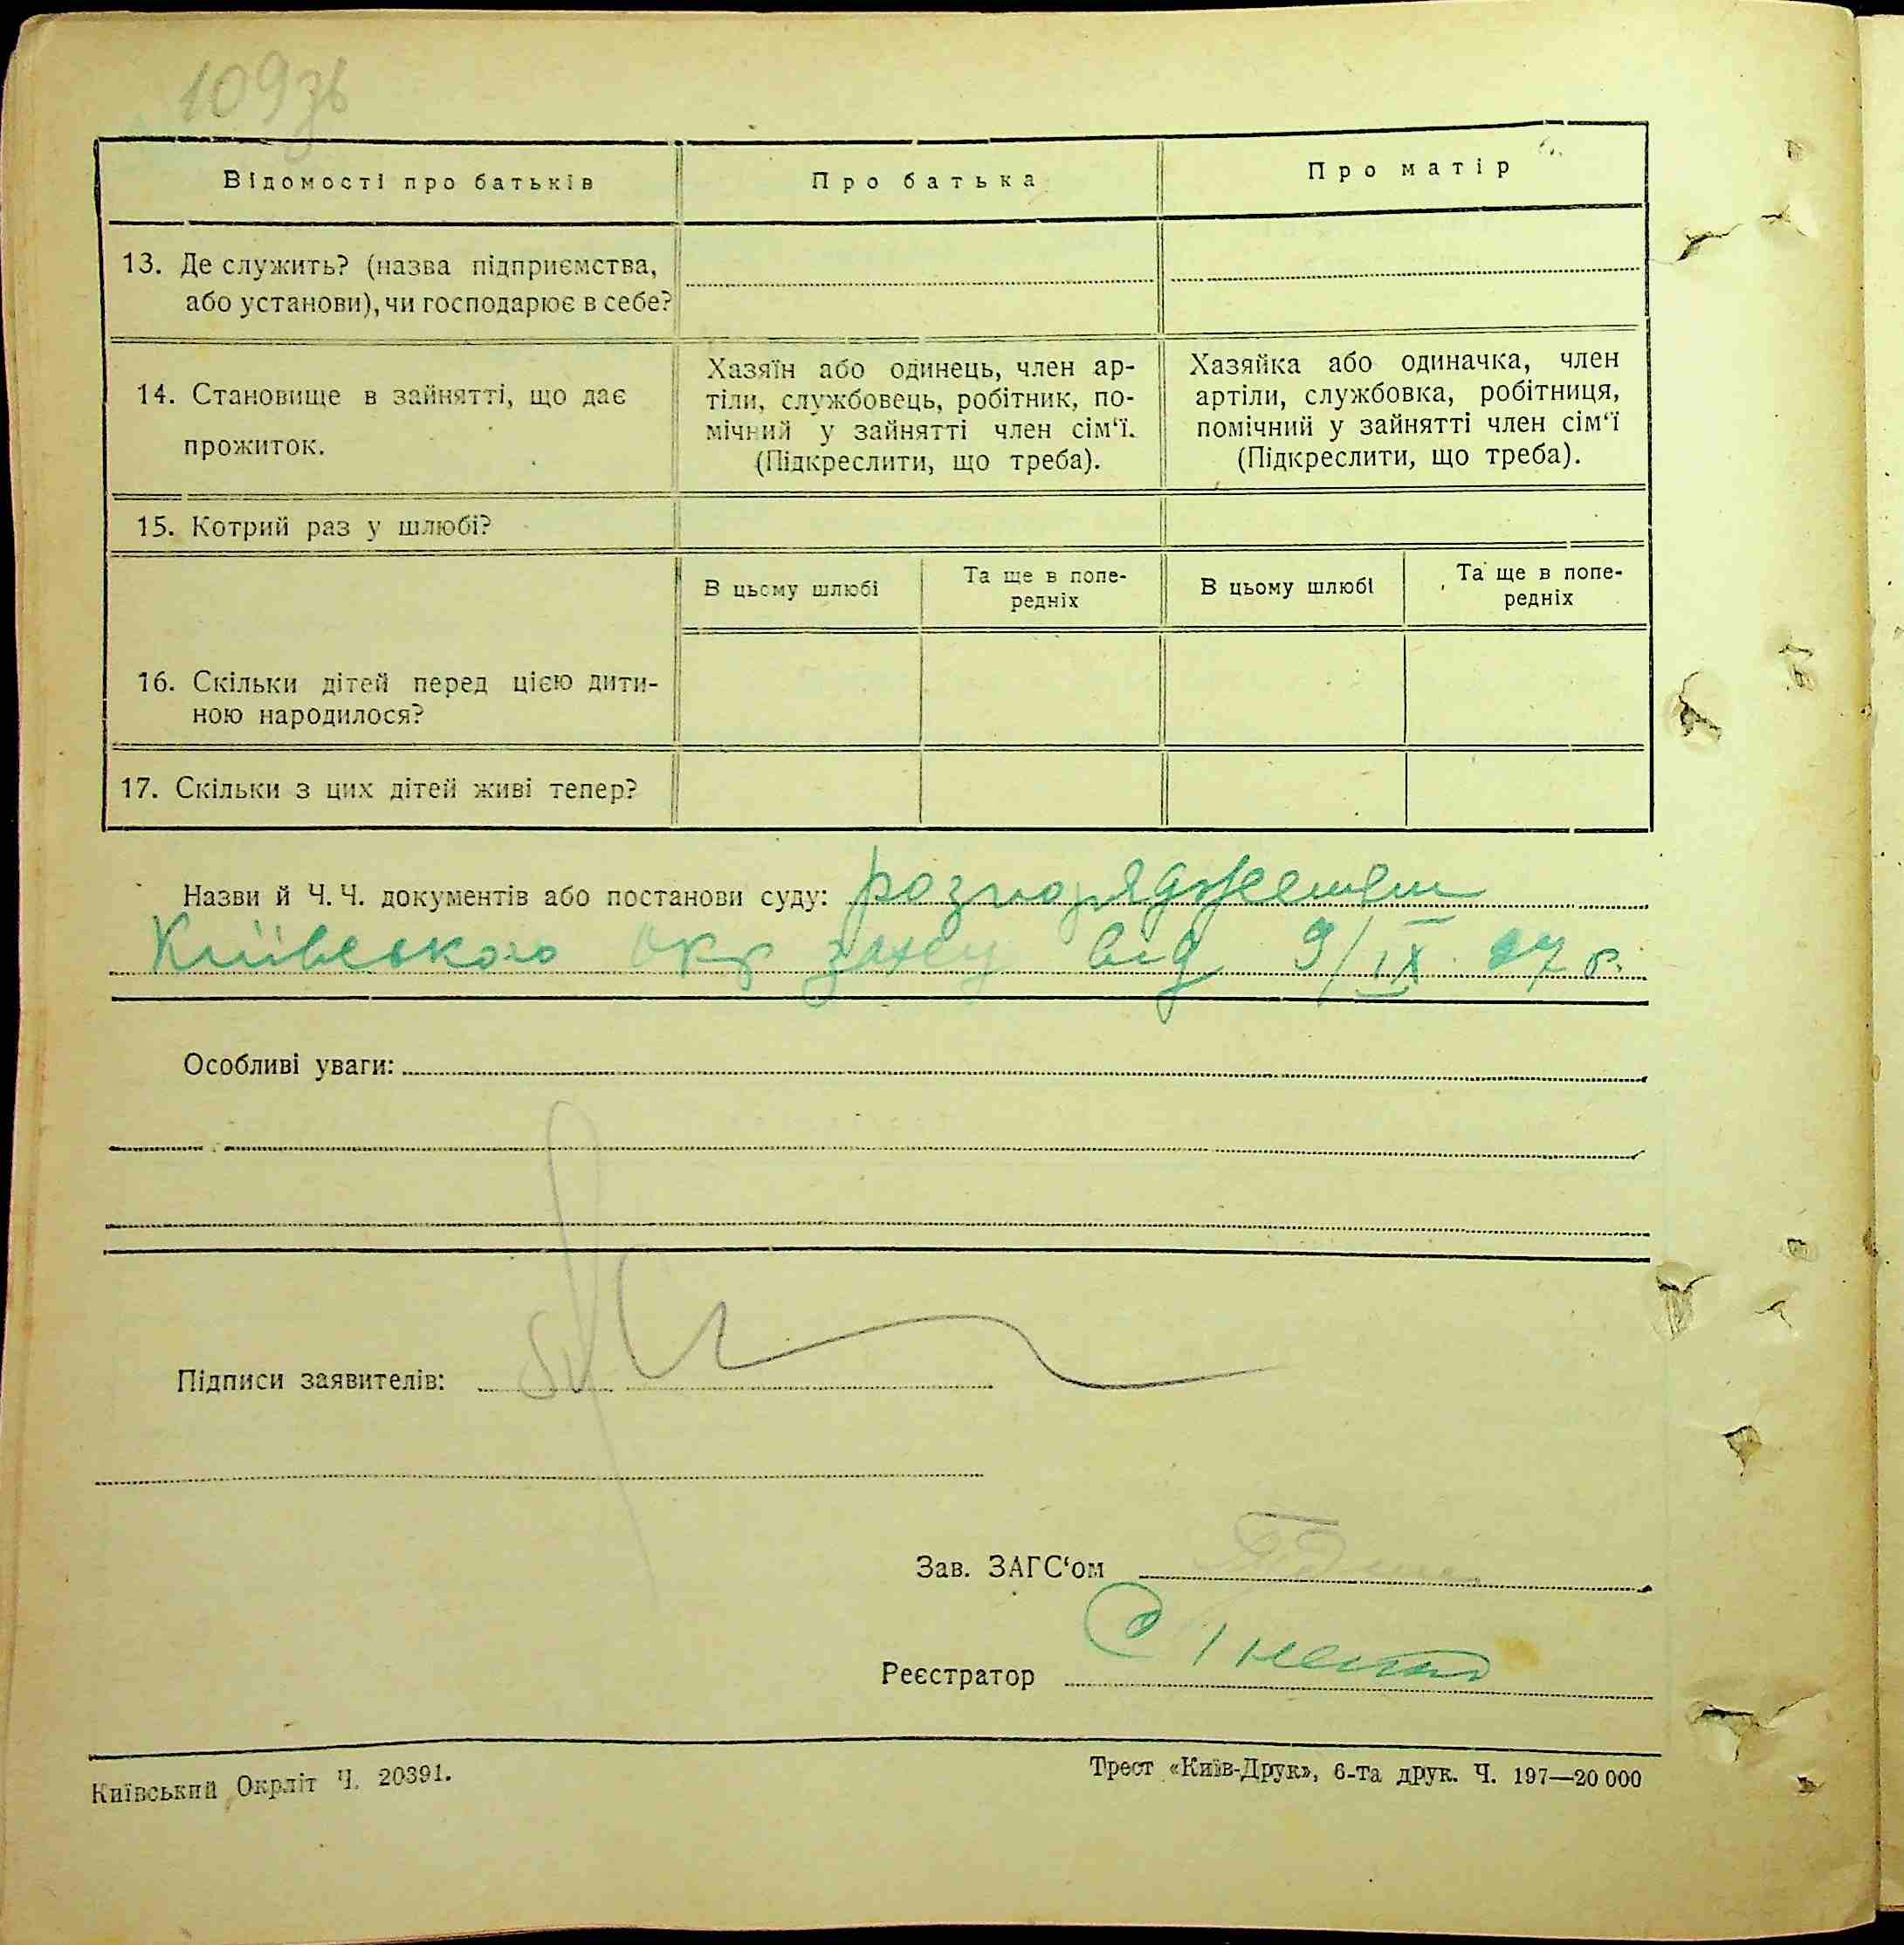 109зв
Відомості про батьків
Про батька
Про матір
13. Де служить? (назва підприємства,
або установи), чи господарює в себе?
14. Становище в зайнятті, що дає
прожиток.
Хазяїн або одинець, член ар-
тіли, службовець, робітник, по-
мічний у зайнятті член сім‘ї.
(Підкреслити, що треба).
Хазяйка або одиначка, член
артіли, службовка, робітниця,
помічний у зайнятті член сім‘ї
(Підкреслити, що треба).
15. Котрий раз у шлюбі?
В цьому шлюбі
Та ще в попе-
редніх
В цьому шлюбі
Та ще в попе-
редніх
16. Скільки дітей перед цією дити-
ною народилося?
17. Скільки з цих дітей живі тепер?
Назви й Ч. Ч. документів або постанови суду: розпорядження
Київського Окр загсу від 9/IX 27 р.
Особливі уваги:
Підписи заявителів:
Зав. ЗАГС‘ом
Реєстратор
Київський Окрліт Ч. 20391.
Трест «Київ-Друк», 6-та друк. Ч. 197—20 000